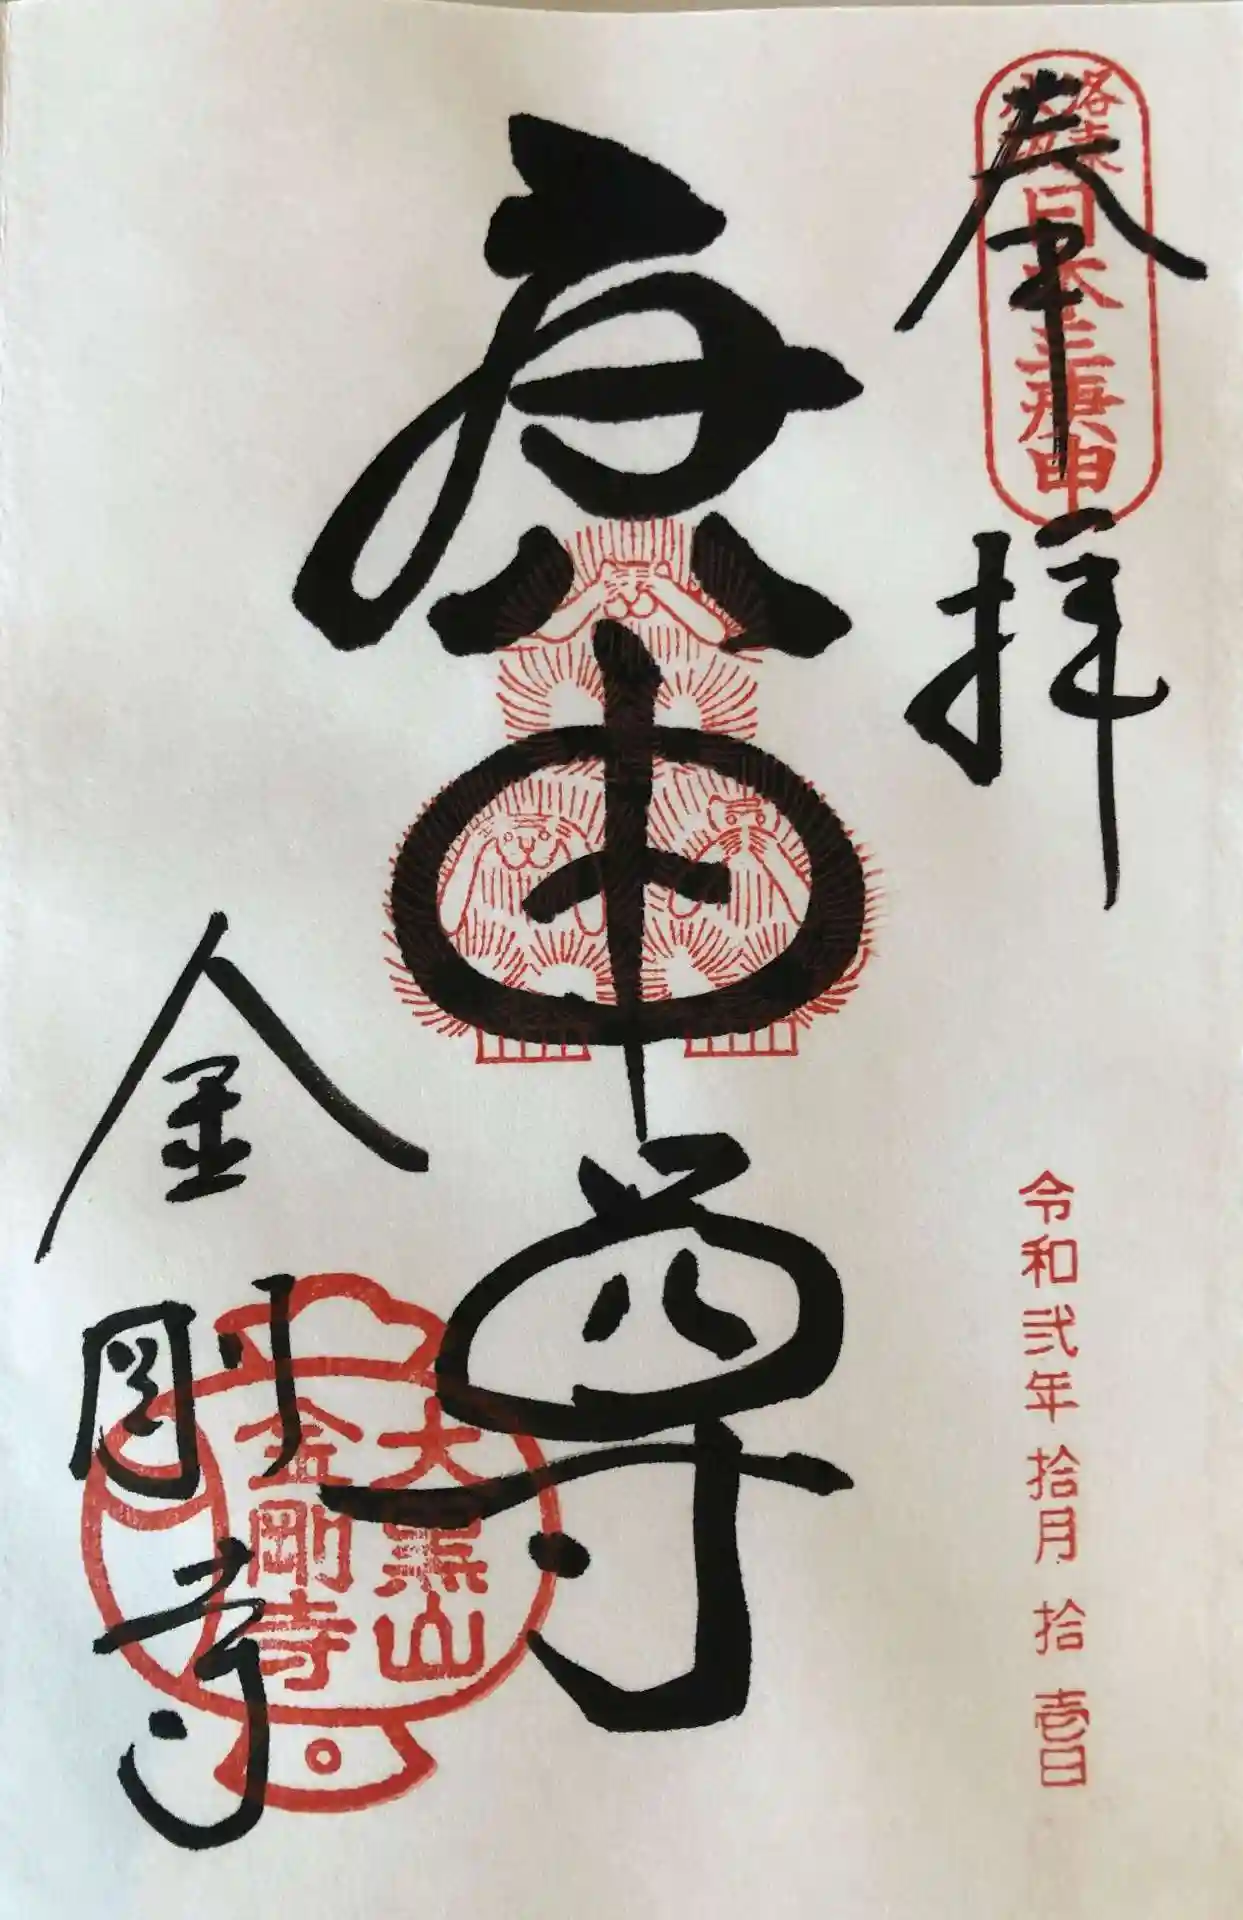 奉拝
日本三庚申
令和弐年拾月拾壱日
庚申尊
金剛寺
大黒山
金剛寺